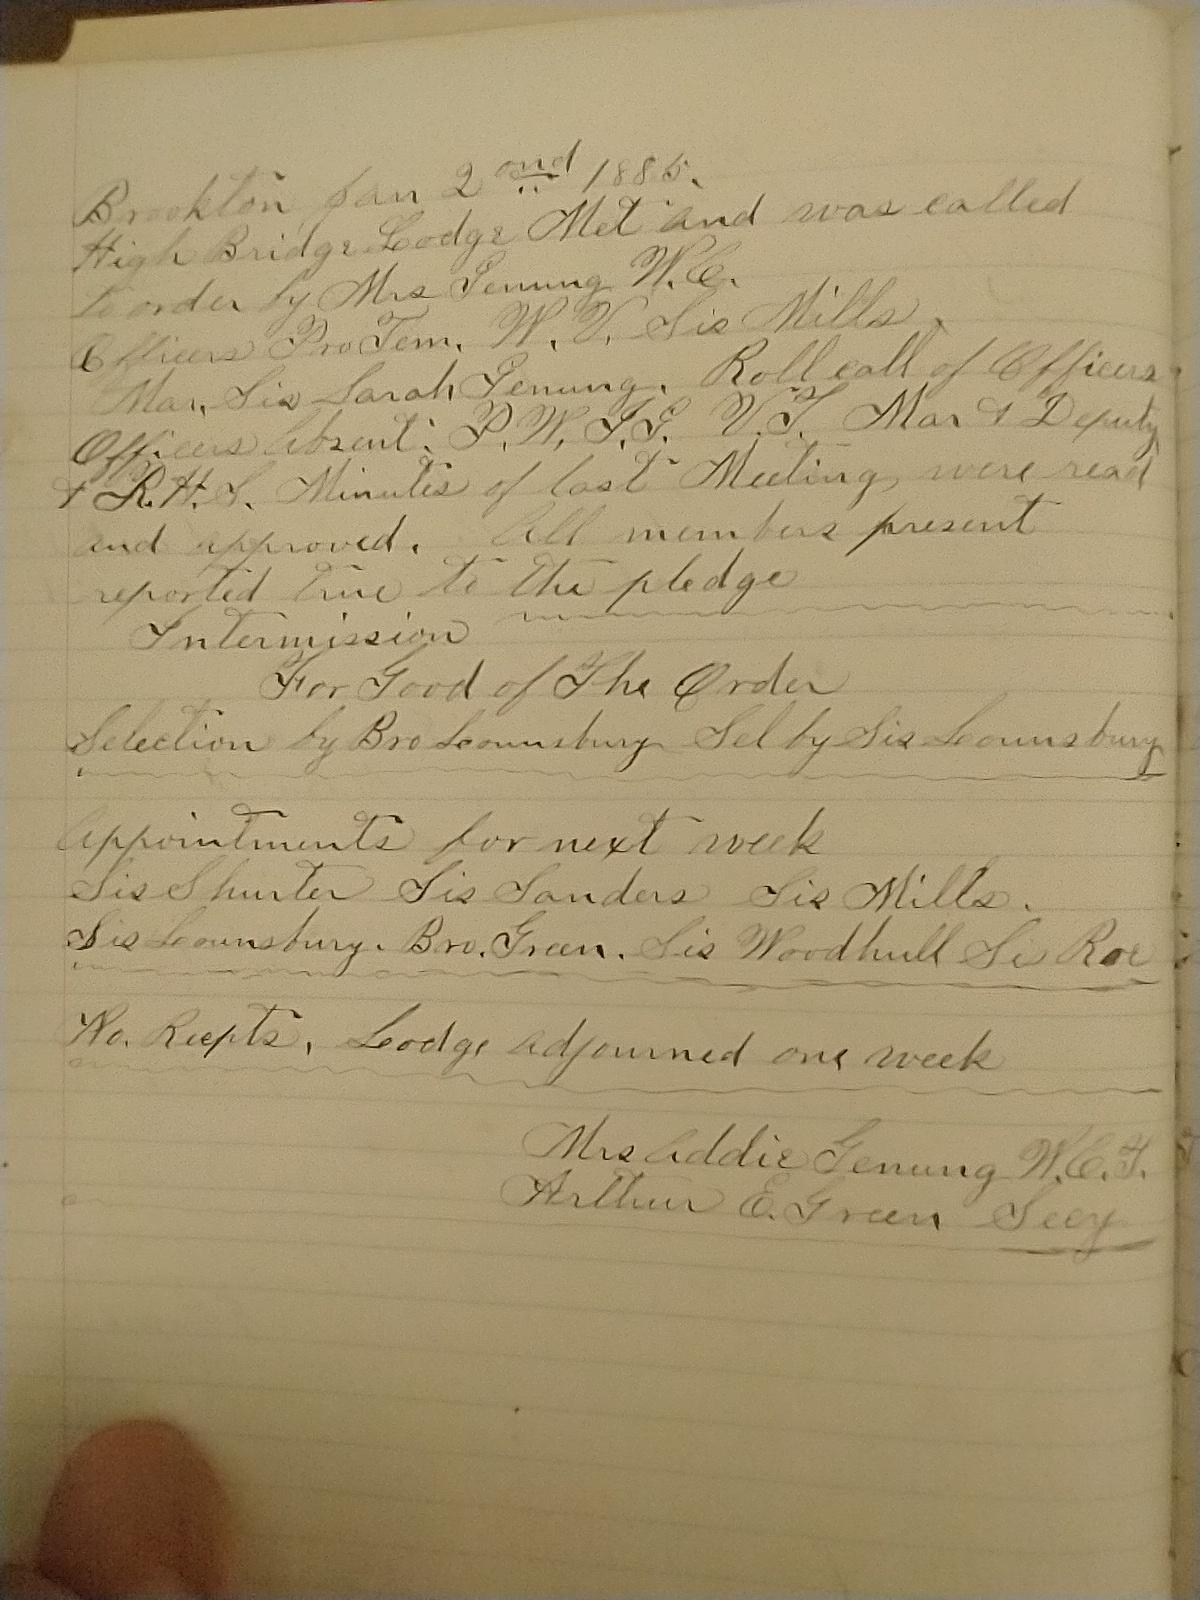 Brookton Jan 2 ond 1885.
High Bridge Lodge Met and was called
to order by Mrs Genung W.C.
Officers Pro Tem. W. V. Sis Mills.
Mar. Sis Sarah Genung. Roll call of Officers
Officers Absent. P.W. I.G. V.T. Mar & Deputy
& R.H.S. Minutes of last Meeting were read
and approved. All members present
reported true to the pledge
Intermission
For Good of The Order
Selection by Bro Lounsbury Sel by Sis Lounsbury
Appointments for next week
Sis Shurter Sis Sanders Sis Mills.
Sis Lounsbury. Bro. Green. Sis Woodhull Roe
No. Recpts. Lodge adjourned one week
Mrs Addie Genung W.C.T.
Arthur E. Green Secy